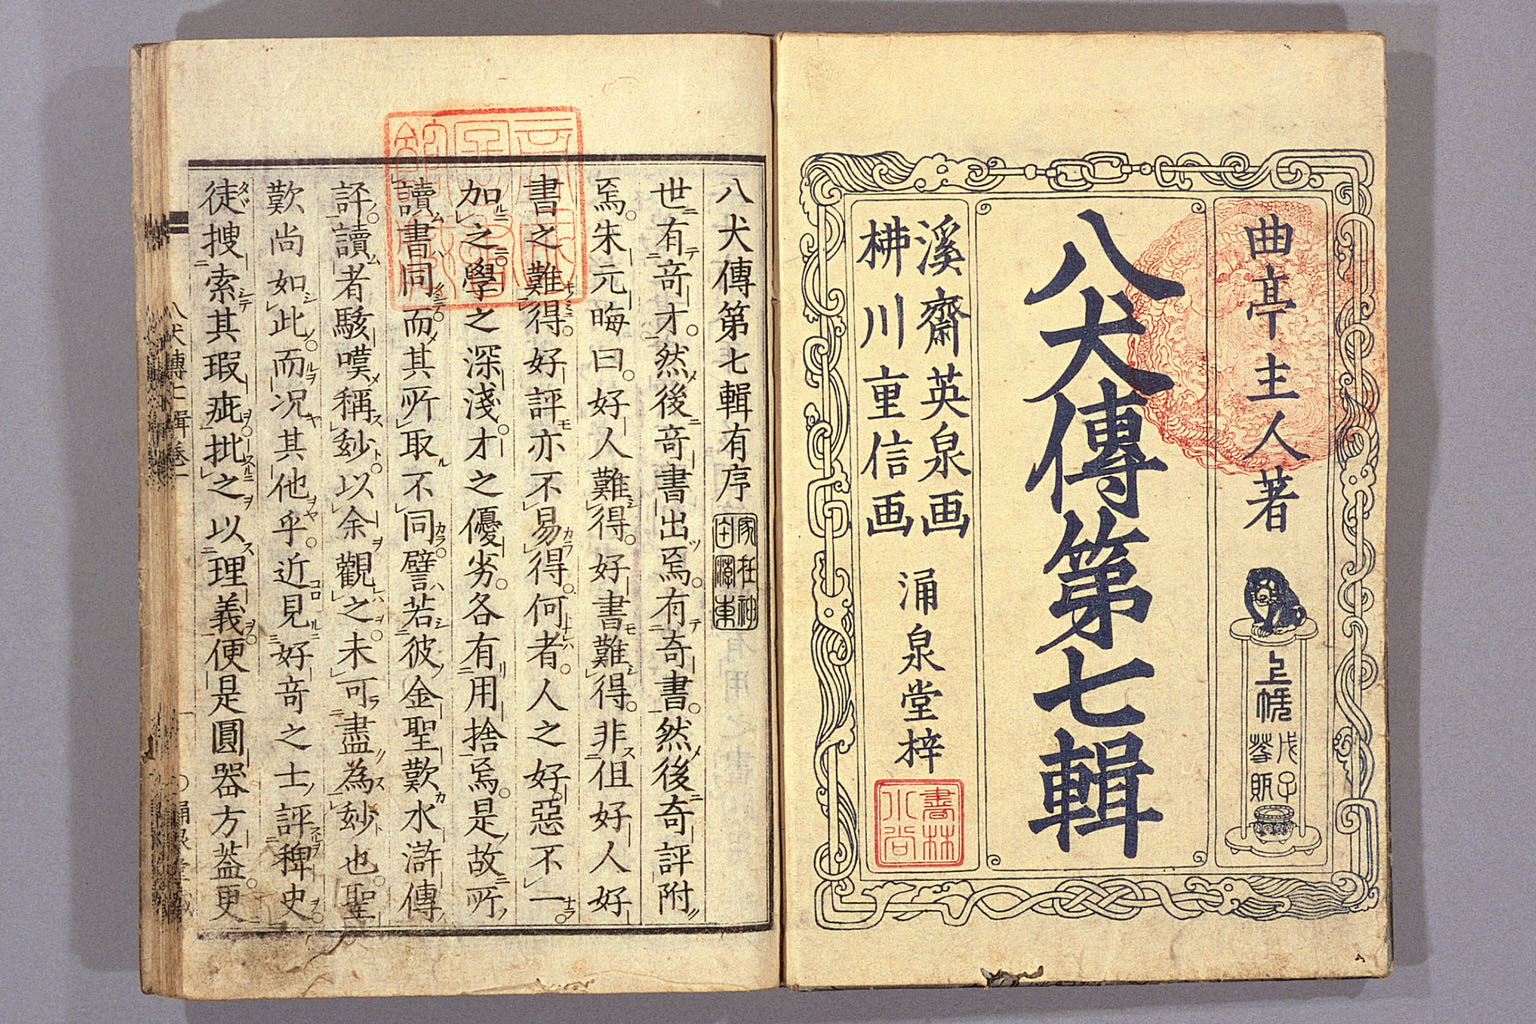 曲亭主人著
上帙
戊子
發販
八犬傳第七輯
溪齋英泉画
柳川重信画
涌泉堂梓
書林
八犬傳第七輯有序
世有竒才。然後竒書出焉。有竒書。然後竒評附
焉。朱元晦曰。好人難得。好書難得。非但好人好
書之難得。好評亦不易得。何者。人之好惡不一。
加之學之深淺。才之優劣。各有用捨焉。是故所
讀書同。而其所取不同。譬若彼金聖歎水滸傳
評。讀者駭嘆稱玅。以余觀之。未可盡為玅也。聖
歎尚如此。而况其他乎。近見好竒之士評稗史。
徒搜索其瑕疵。批之以理義。便是圓器方葢。更
八犬傳七輯卷一